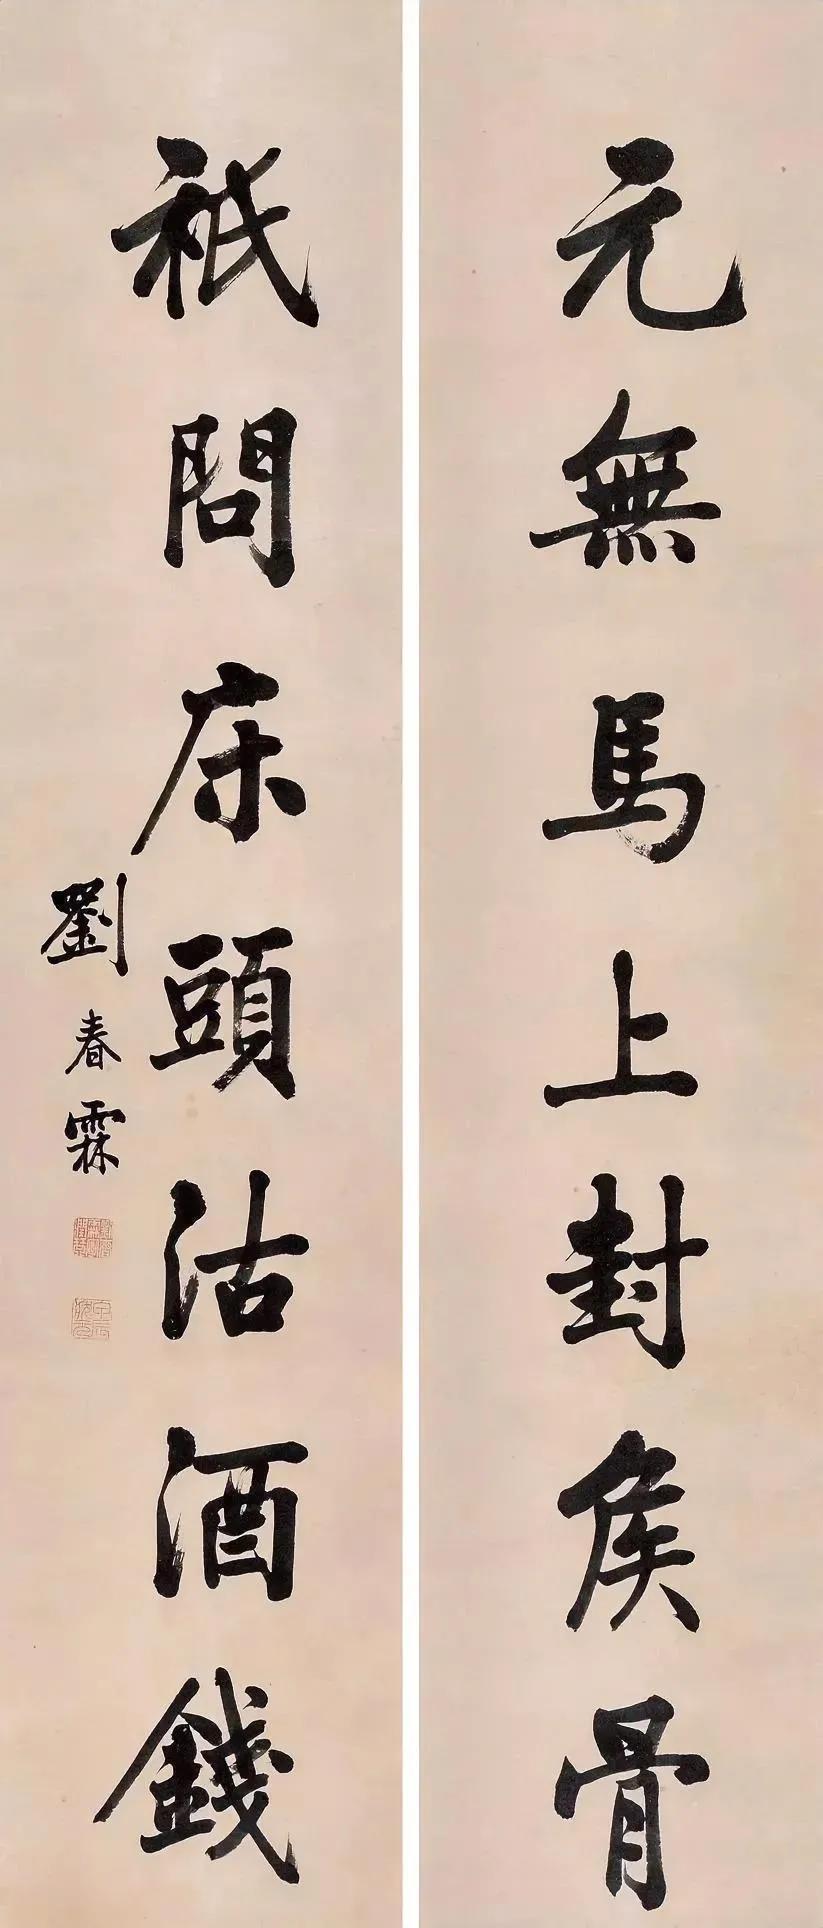 元無馬上封矦骨
祇問床頭沽酒錢
劉春霖